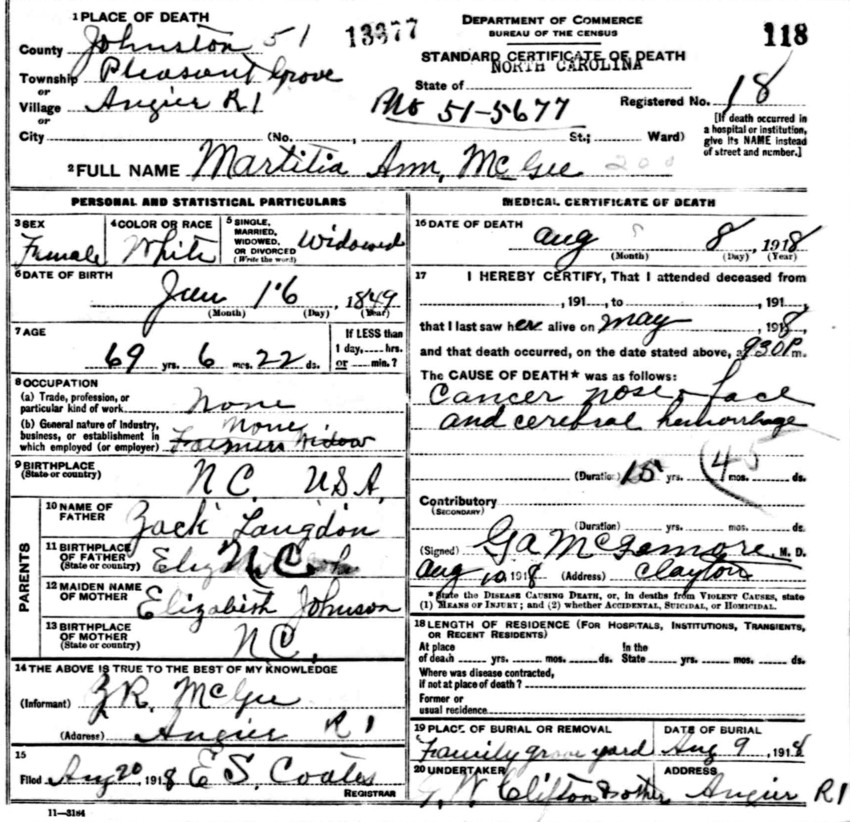 1 PLACE OF DEATH
County Johnston 51
13377
DEPARTMENT OF COMMERCE
BUREAU OF THE CENSUS
118
Township Pleasant Grove
or
Village Angier R1
or
STANDARD CERTIFICATE OF DEATH
NORTH CAROLINA
State of
No 51-5677
Registered No. 18
City (No. St.; Ward)
[If death occurred in
a hospital or institution,
give its NAME instead
of street and number.]
2 FULL NAME Martitia Ann, McGee 200
PERSONAL AND STATISTICAL PARTICULARS
3 SEX
Female
4 COLOR OR RACE
White
5 SINGLE,
MARRIED,
WIDOWED,
OR DIVORCED
(Write the word)
Widowed
6 DATE OF BIRTH
Jan 16 1849
(Month) (Day) (Year)
7 AGE
69 yrs. 6 mos. 22 ds.
If LESS than
1 day, hrs.
or min.?
8 OCCUPATION
(a) Trade, profession, or
particular kind of work
None
(b) General nature of industry,
business, or establishment in
which employed (or employer)
None
Farmers Widow
9 BIRTHPLACE
(State or country)
N.C. U.S.A.
PARENTS
10 NAME OF
FATHER
Zack Langdon
11 BIRTHPLACE
OF FATHER
(State or country)
N.C.
12 MAIDEN NAME
OF MOTHER
Elizabeth Johnson
13 BIRTHPLACE
OF MOTHER
(State or country)
N.C.
14 THE ABOVE IS TRUE TO THE BEST OF MY KNOWLEDGE
(Informant) Z.R. McGee
(Address) Angier R1
15
Filed Aug 20 1918 E S. Coates
REGISTRAR
11-3184
MEDICAL CERTIFICATE OF DEATH
16 DATE OF DEATH
Aug 8 1918
(Month) (Day) (Year)
17 I HEREBY CERTIFY, That I attended deceased from
, 191 , to , 191 ,
that I last saw her alive on May , 1918
and that death occurred, on the date stated above, at 930P m.
The CAUSE OF DEATH* was as follows:
Cancer nose & face
and cerebral hemorrhage
(Duration) 15 yrs. 45 mos. ds.
Contributory
(SECONDARY)
(Duration) yrs. mos. ds.
(Signed) M. D.
Aug 10, 1918 (Address) Clayton
* State the DISEASE CAUSING DEATH, or, in deaths from VIOLENT CAUSES, state
(1) MEANS OF INJURY; and (2) whether ACCIDENTAL, SUICIDAL, or HOMICIDAL.
18 LENGTH OF RESIDENCE (FOR HOSPITALS, INSTITUTIONS, TRANSIENTS,
OR RECENT RESIDENTS)
At place
of death yrs. mos. ds.
In the
State yrs. mos. ds.
Where was disease contracted,
if not at place of death?
Former or
usual residence
19 PLACE OF BURIAL OR REMOVAL
Family grave yard
DATE OF BURIAL
Aug 9 , 1918
20 UNDERTAKER
G. W Clifton & other
ADDRESS
Angier R1